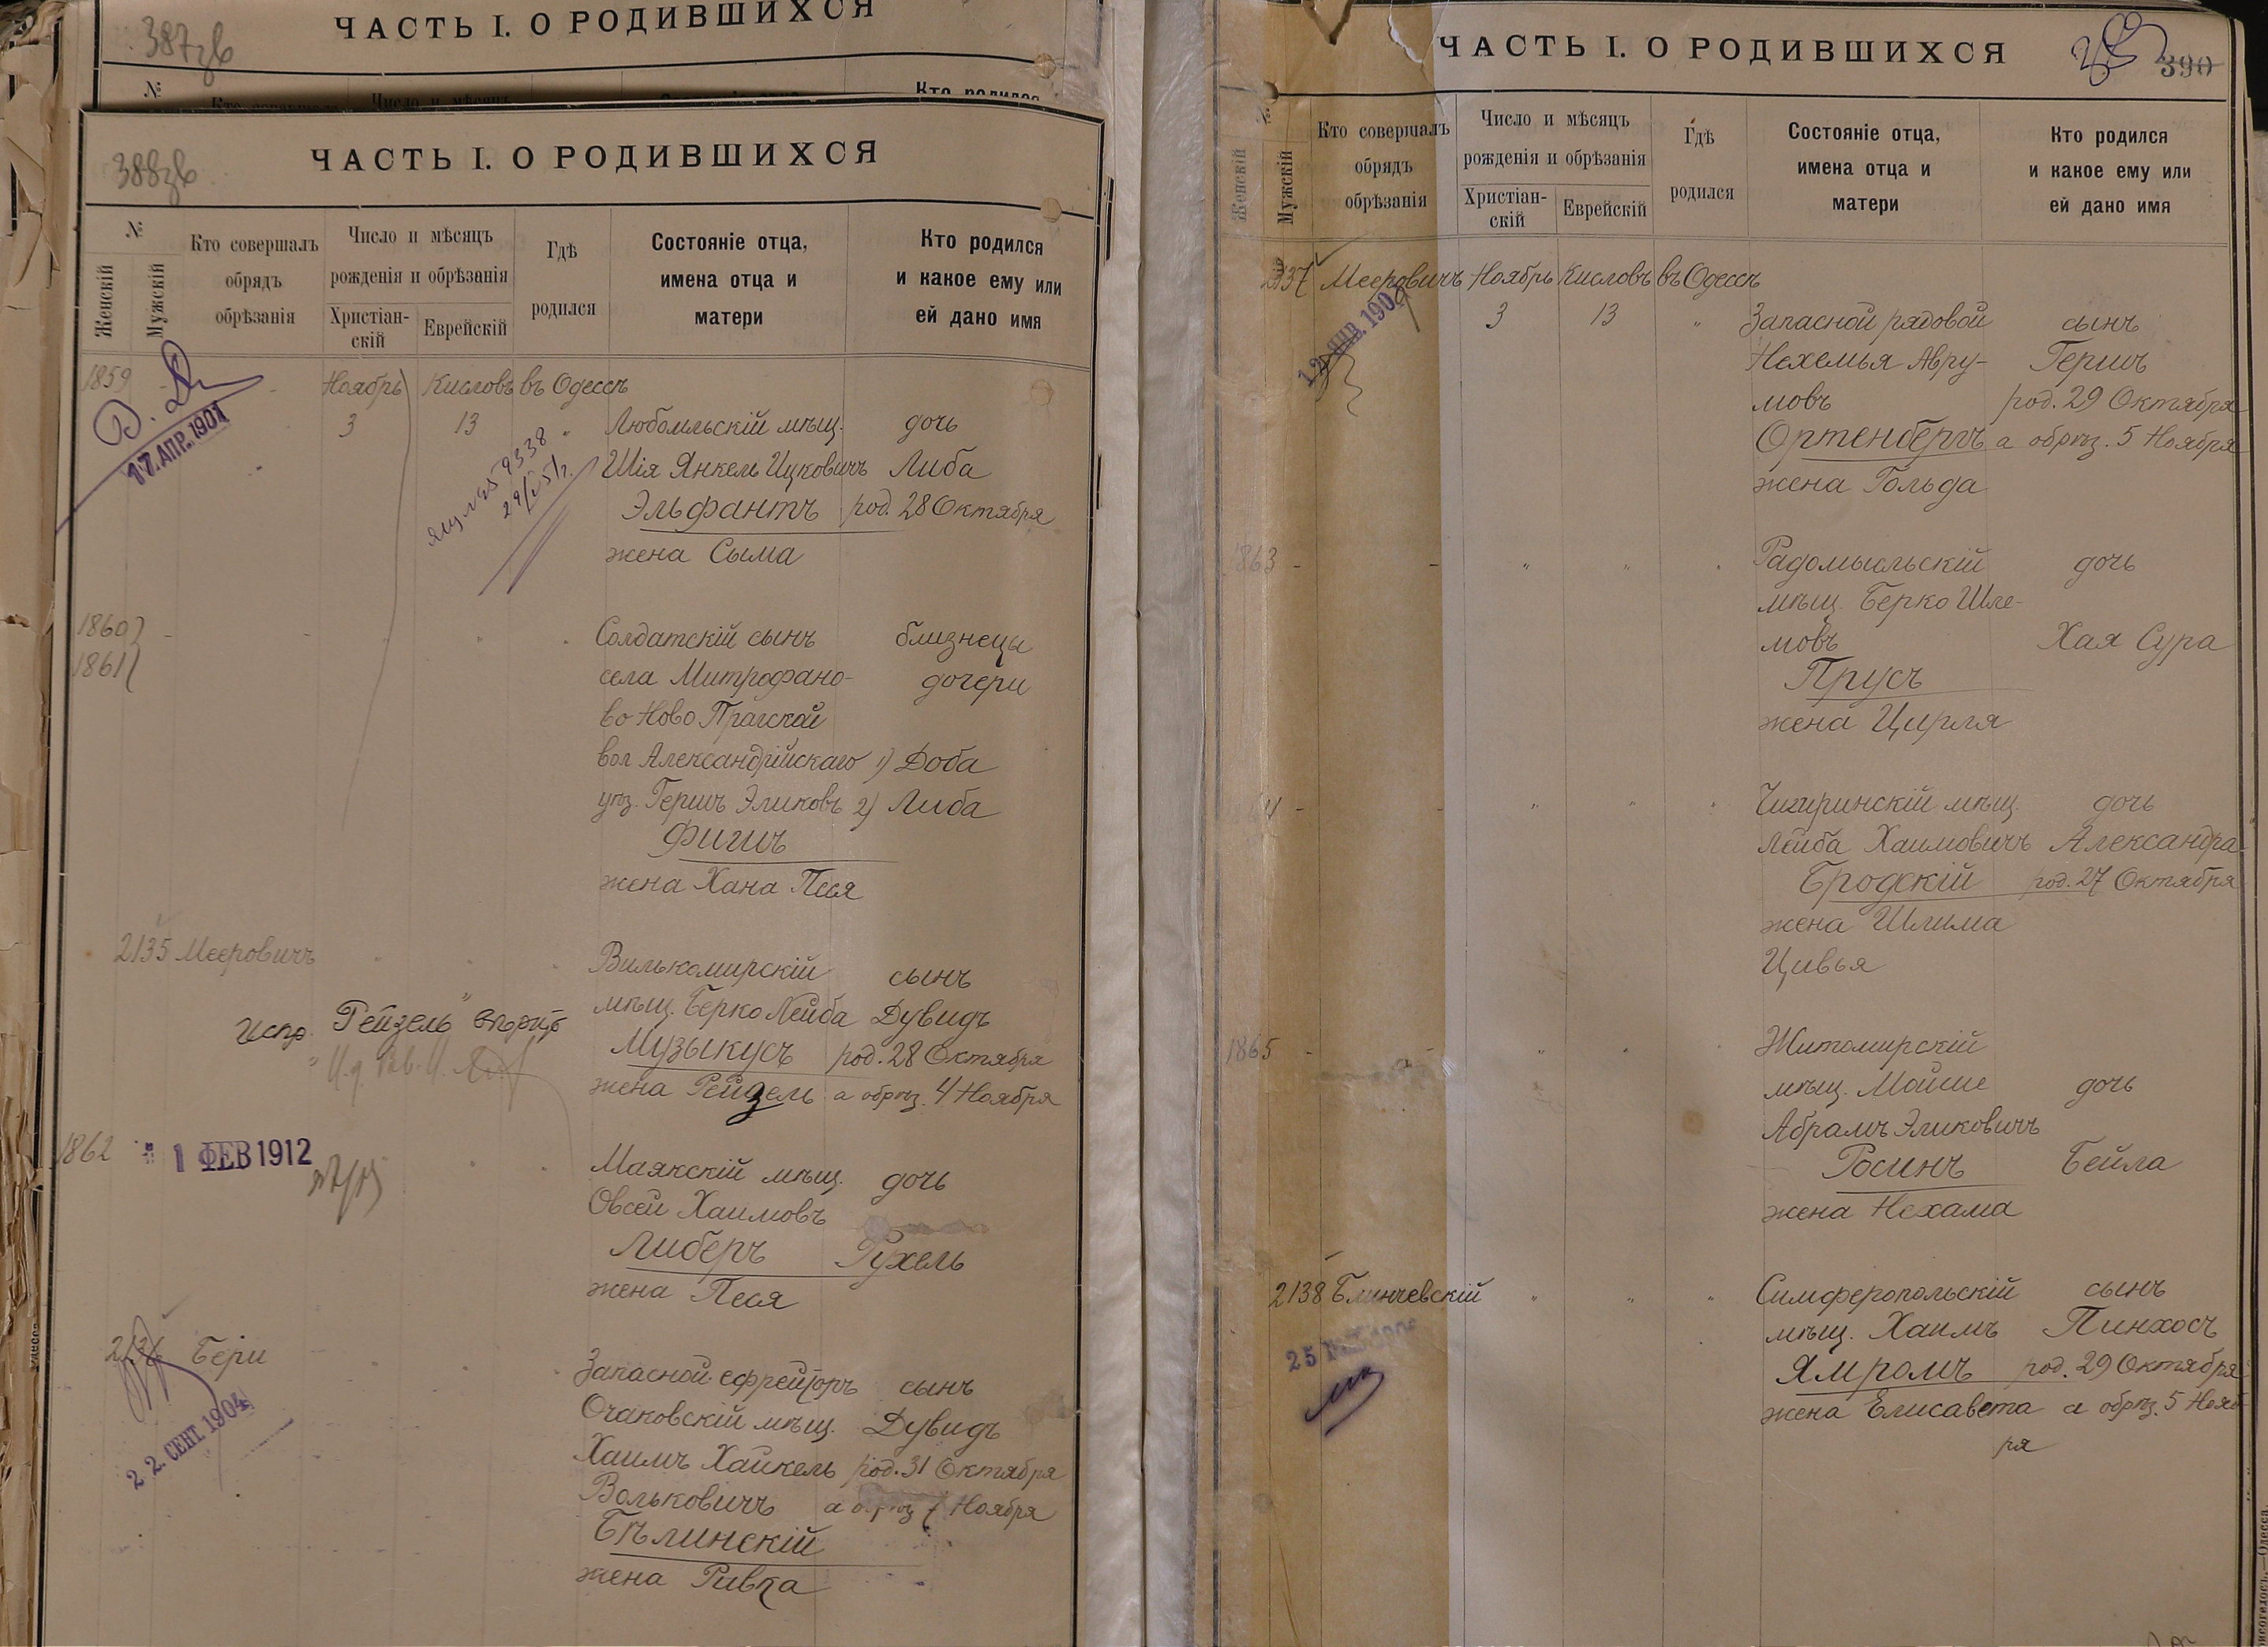 ЧАСТЬ I. О РОДИВШИХСЯ
387зв
№
ЧАСТЬ I. О РОДИВШИХСЯ
388зв
№
Женскій
Мужскій
Кто совершалъ
обрядъ
обрѣзанія
Число и мѣсяцъ
рожденія и обрѣзанія
Христіан-
скій
Еврейскій
Гдѣ
родился
Состояніе отца,
имена отца и
матери
Кто родился
и какое ему или
ей дано имя
1859
Ноябрь Кисловъ въ Одессѣ
3 13 " Любомльскій мѣщ. дочь
17. АПР. 1901
Шія Янкель Ицковичъ Либа
Эльфантъ род. 28 Октября
жена Сыма
1860
1861
Солдатскій сынъ близнецы
села Митрофано- дочери
во Ново Прагской
вол Александрійскаго 1) Доба
уѣз. Гершъ Эликовъ 2) Либа
Фигшъ
жена Хана Песя
2135 Мееровичъ
Вилькомирскій сынъ
мѣщ. Берко Лейба Дувидъ
Испр. "Рейзель"
Музыкусъ род. 28 Октября
жена Рейзель а обрѣз. 4 Ноября
1862
1 ФЕВ 1912
Маякскій мѣщ. дочь
Овсей Хаимовъ
Либеръ Рухель
жена Песя
2136 Бери
22. СЕНТ. 1904
Запасной ефрейторъ сынъ
Очаковскій мѣщ. Дувидъ
Хаимъ Хайкель род. 31 Октября
Вольковичъ а обрѣз 7 Ноября
Бѣлинскій
жена Ривка
ЧАСТЬ I. О РОДИВШИХСЯ
390
№
Женскій
Мужскій
Кто совершалъ
обрядъ
обрѣзанія
Число и мѣсяцъ
рожденія и обрѣзанія
Христіан-
скій
Еврейскій
Гдѣ
родился
Состояніе отца,
имена отца и
матери
Кто родился
и какое ему или
ей дано имя
2137 Мееровичъ Ноябрь Кисловъ въ Одессѣ
3 13 " Запасной рядовой сынъ
Нехемья Авру- Гершъ
мовъ род. 29 Октября
Ортенбергъ а обрѣз. 5 Ноября
жена Гольда
1863 - - " " " Радомысльскій дочь
мѣщ. Берко Шле-
мовъ Хая Сура
Прусъ
жена Цирля
Чигиринскій мѣщ. дочь
Лейба Хаимовичъ Александра
Бродскій род. 27 Октября
жена Шлима
Цивья
1865
Житомирскій
мѣщ. Мойше дочь
Абрамъ Эликовичъ
Росинъ Бейла
жена Нехама
2138 Блинчевскій " " " Симферопольскій сынъ
мѣщ. Хаимъ Пинхосъ
Ямромъ род. 29 Октября
жена Елисавета а обрѣз. 5 Нояб-
ря